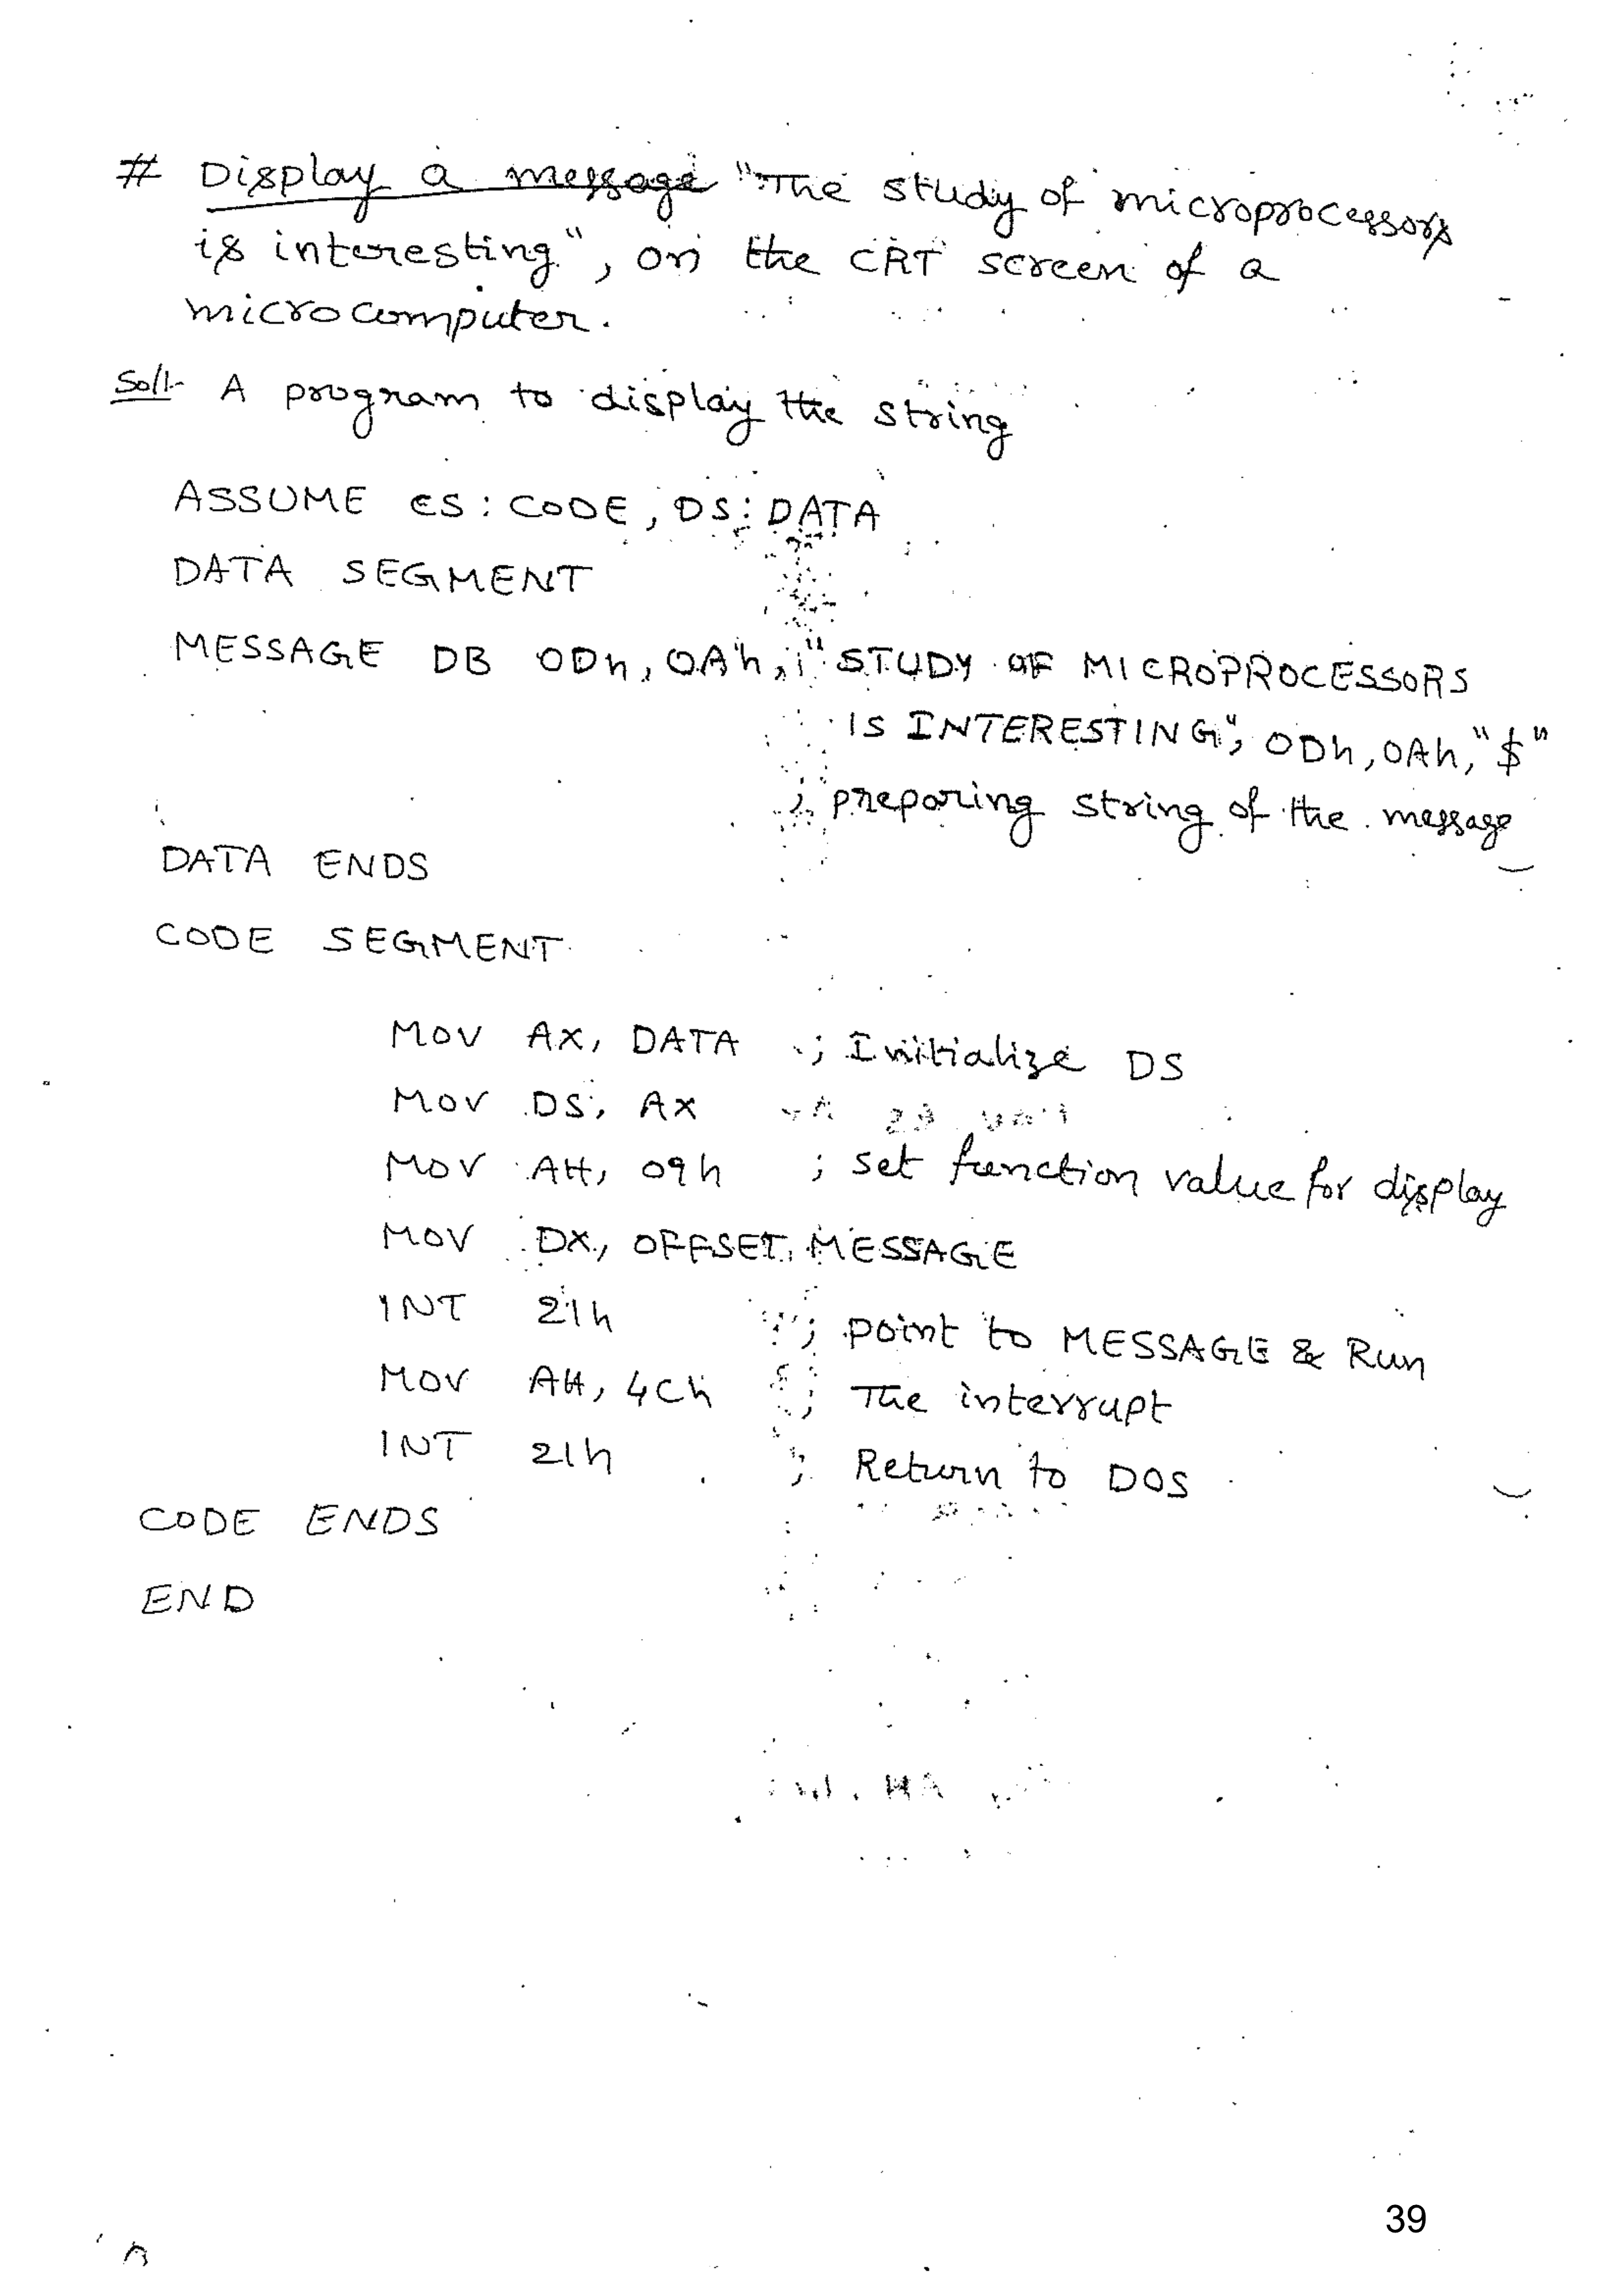 # Display a message "The study of microprocessors
is interesting", on the CRT screen of a
microcomputer.
Sol:- A program to display the string
ASSUME CS : CODE, DS : DATA
DATA SEGMENT
MESSAGE DB 0Dh, 0Ah, "STUDY OF MICROPROCESSORS
IS INTERESTING", 0Dh, 0Ah, "$"
; preparing string of the message
DATA ENDS
CODE SEGMENT
MOV AX, DATA ; Initialize DS
MOV DS, AX
MOV AH, 09h ; set function value for display
MOV DX, OFFSET MESSAGE
INT 21h ; point to MESSAGE & Run
MOV AH, 4Ch ; The interrupt
INT 21h ; Return to DOS
CODE ENDS
END
39